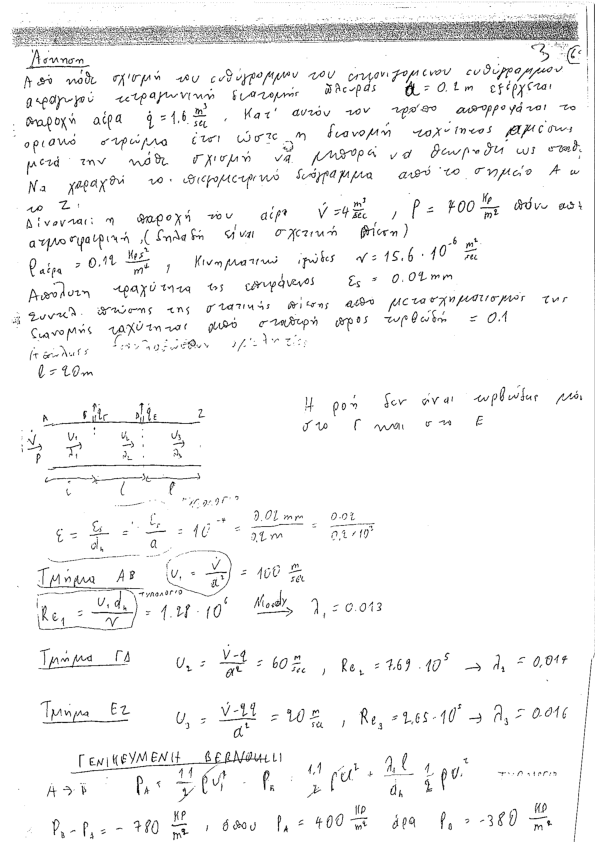 Άσκηση
3
Από κάθε σχισμή του ευθύγραμμου του εικονιζόμενου ευθύγραμμου
αεραγωγού τετραγωνικής διατομής πλευράς α = 0.2 m εξέρχεται
παροχή αέρα q̇ = 1.6 m³/sec. Κατ' αυτόν τον τρόπο απορροφάται το
οριακό στρώμα έτσι ώστε η διανομή ταχύτητας αμέσως
μετά την κάθε σχισμή να μπορεί να θεωρηθεί ως σταθ
Να χαραχθεί το πιεζομετρικό διάγραμμα από το σημείο Α ω
το Ζ.
Δίνονται: η παροχή του αέρα V̇ = 4 m³/sec , P = 400 Kp/m² πάνω απ
ατμοσφαιρική, (δηλαδή είναι σχετική πίεση)
ραέρα = 0.12 Kps²/m⁴ , Κινηματικό ιξώδες ν = 15.6 · 10⁻⁶ m²/sec
Απόλυτη τραχύτητα της επιφάνειας εs = 0.02 mm
Συντελ. πτώσης της στατικής πίεσης από μετασχηματισμός της
διανομής ταχύτητας από σταθερή προς τυρβώδη = 0.1
l = 20 m
Η ροή δεν είναι τυρβώδης μό
στο Γ και στο Ε
A B q̇ Γ Δ q̇ E Z
V̇ U₁ U₂ U₃
P λ₁ λ₂ λ₃
l l l
ε = εs/dh = εs/a = 10⁻⁴ = 0.02 mm/0.2 m = 0.02/0.2×10³
Τμήμα ΑΒ U₁ = V̇/a² = 100 m/sec
ΤΥΠΟΛΟΓΙΟ
Re₁ = U₁dh/ν = 1.28 · 10⁶ Moody → λ₁ = 0.013
Τμήμα ΓΔ U₂ = V̇-q/a² = 60 m/sec , Re₂ = 7.69 · 10⁵ → λ₂ = 0.014
Τμήμα ΕΖ U₃ = V̇-2q/a² = 20 m/sec , Re₃ = 2.65 · 10⁵ → λ₃ = 0.016
ΓΕΝΙΚΕΥΜΕΝΗ BERNOULLI
A → B PA + 1.1/2 ρU₁² = PB + 1.1/2 ρU₁² + λ₁l/dh 1/2 ρU₁² ΤΥΠΟΛΟΓΙΟ
PB - PA = - 780 Kp/m² , όπου PA = 400 Kp/m² άρα PB = -380 Kp/m²